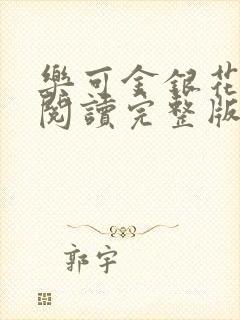 樂可金銀花
閱讀完整版
郭宇